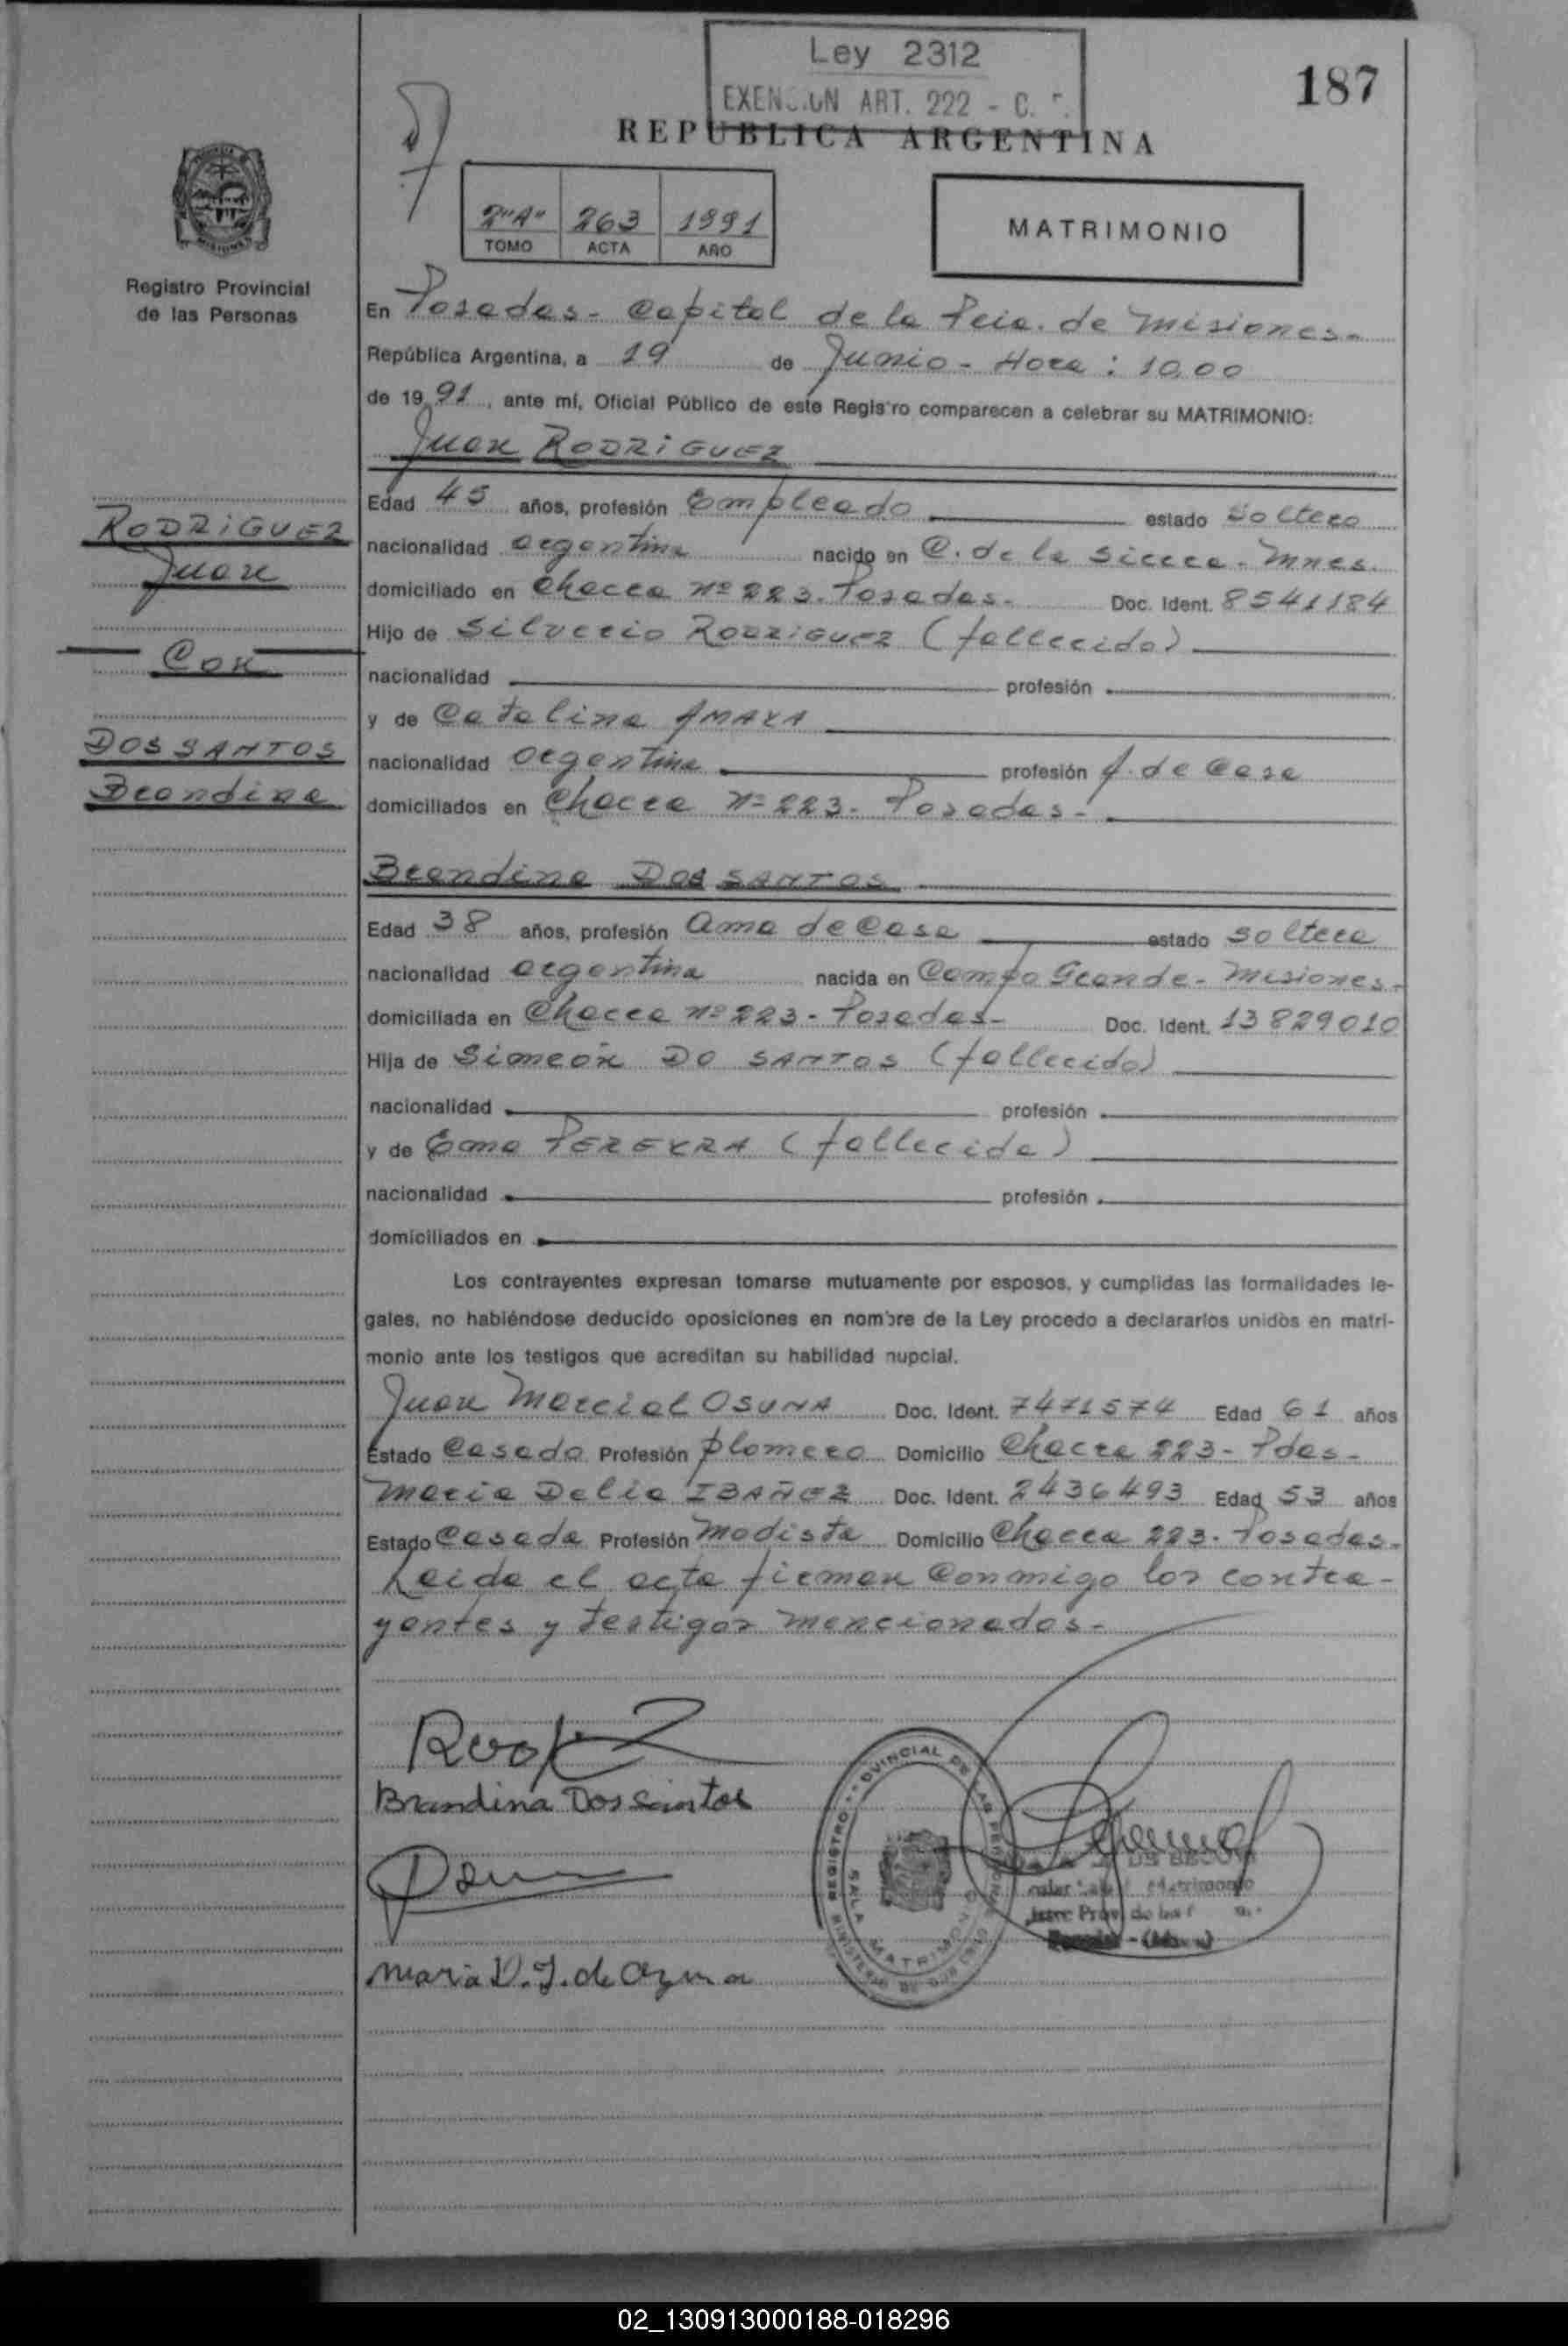 Ley 2312
EXENCION ART. 222 - C.
187
REPUBLICA ARGENTINA
2"A" 263 1991
TOMO ACTA AÑO
MATRIMONIO
Registro Provincial
de las Personas
En Posadas - Capital de la Pcia. de Misiones -
República Argentina, a 19 de Junio - Hora: 10,00
de 1991, ante mí, Oficial Público de este Registro comparecen a celebrar su MATRIMONIO:
Juan RODRIGUEZ
Edad 45 años, profesión Empleado estado Soltero
nacionalidad argentina nacido en C. de la Sierra - Mnes.
domiciliado en Chacra nº 223. Posadas - Doc. Ident. 8541184
Hijo de Silverio RODRIGUEZ (fallecido)
nacionalidad profesión
y de Catalina AMAYA
nacionalidad argentina profesión A. de Casa
domiciliados en Chacra nº 223 - Posadas -
RODRIGUEZ
Juan
Con
DOS SANTOS
Brandina
Brandina DOS SANTOS
Edad 38 años, profesión Ama de Casa estado soltera
nacionalidad argentina nacida en Campo Grande - Misiones -
domiciliada en Chacra nº 223 - Posadas - Doc. Ident. 13829010
Hija de Simeón DO SANTOS (fallecido)
nacionalidad profesión
y de Ema PEREYRA (fallecida)
nacionalidad profesión
domiciliados en
Los contrayentes expresan tomarse mutuamente por esposos, y cumplidas las formalidades le-
gales, no habiéndose deducido oposiciones en nombre de la Ley procedo a declararlos unidos en matri-
monio ante los testigos que acreditan su habilidad nupcial.
Juan Marcial OSUNA Doc. Ident. 7471574 Edad 61 años
Estado Casado Profesión plomero Domicilio Chacra 223 - Pdas -
Maria Delia IBAÑEZ Doc. Ident. 2436493 Edad 53 años
Estado Casada Profesión Modista Domicilio Chacra 223 - Posadas -
Leida el acta firman conmigo los contra-
yentes y testigos mencionados -
Brandina Dos Santos
REGISTRO PROVINCIAL DE LAS PERSONAS
SALA MATRIMONIO
MINISTERIO DE GOBIERNO
Maria D. I. de Ozuna
02_130913000188-018296